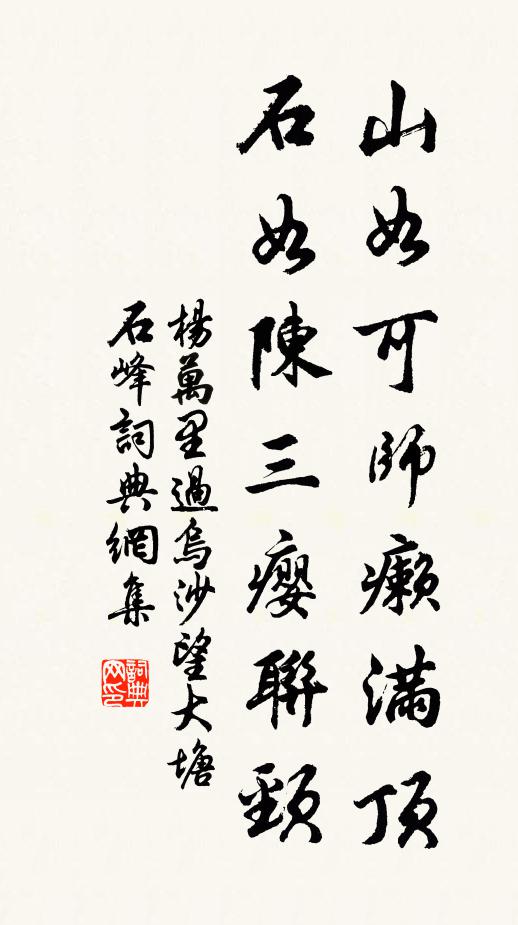 山如可師癩滿頂
石如陳三癭聯頸
楊萬里過烏沙望大塘
石峰詞典網集
詞典网印